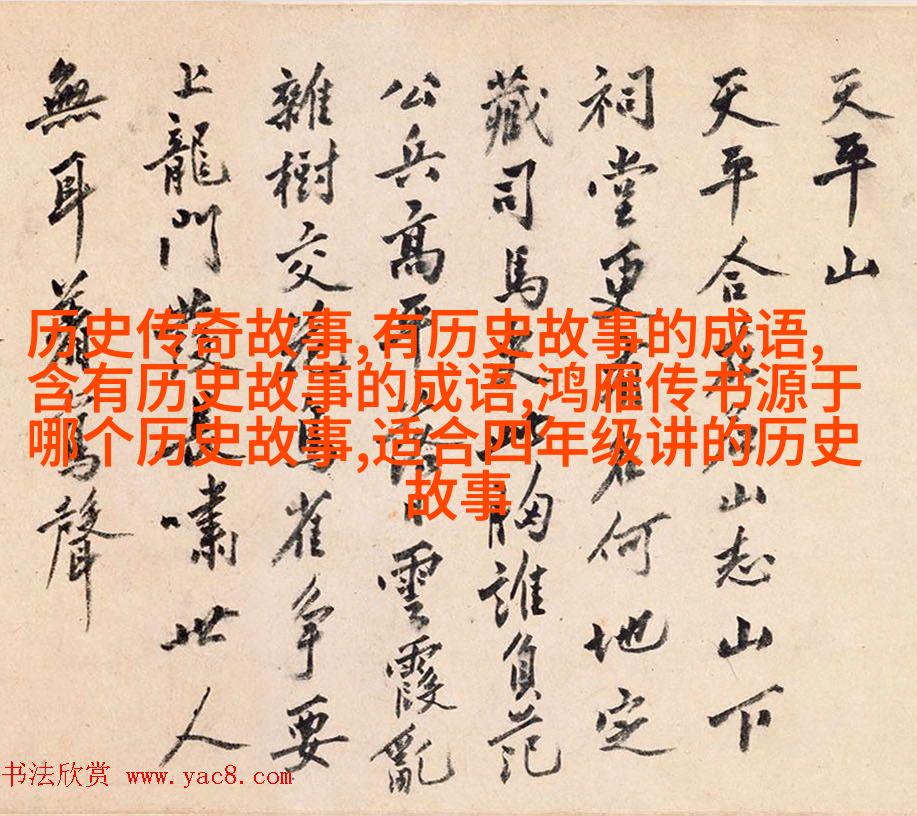 天平山
天平合山志山下
祠堂更何地定
藏司馬史此胸誰負范
公兵高落日雲霞亂
雜樹交鳥雀爭要
上龍門發長嘯世人
無耳鸞聲
历史传奇故事,有历史故事的成语,
含有历史故事的成语,鸿雁传书源于
哪个历史故事,适合四年级讲的历史
故事
书法欣赏 www.yac8.com